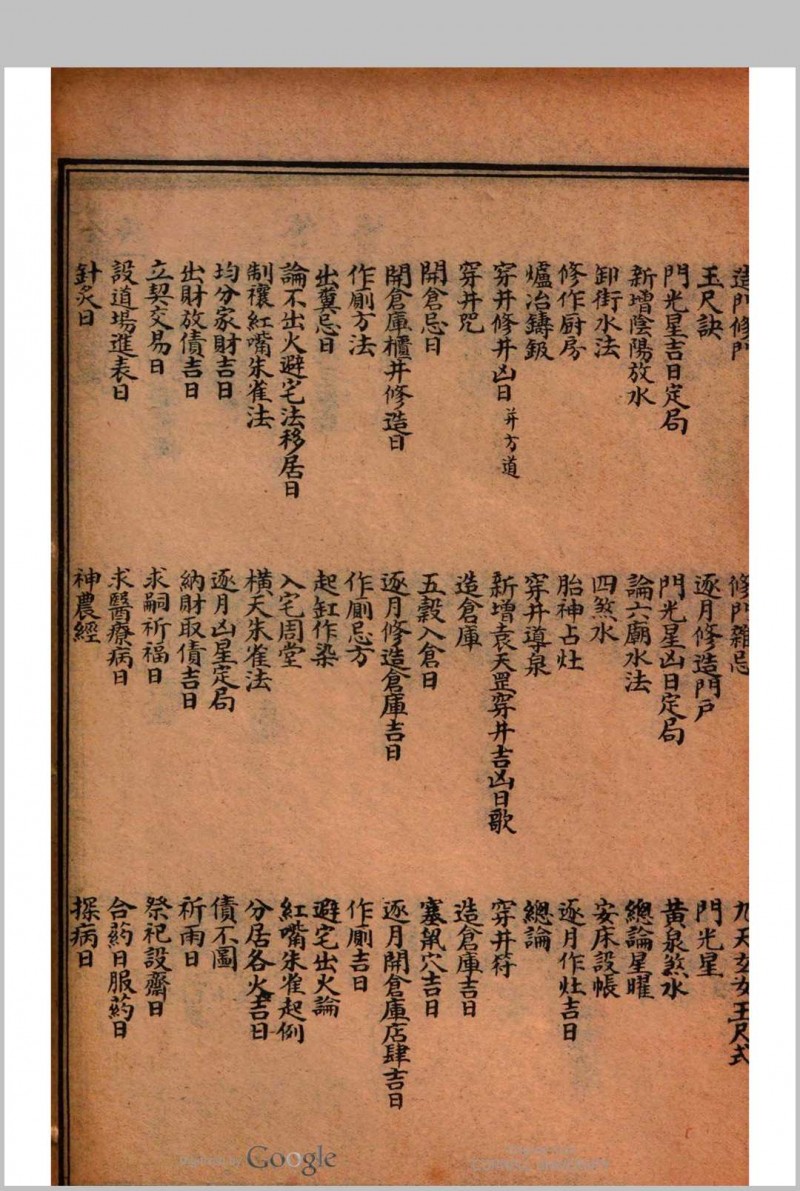 造門修門 修門雜忌 九天玄女玉尺式
玉尺訣 逐月修造門戶 門光星
門光星吉日定局 門光星凶日定局 黃泉煞水
新增陰陽放水 論六廟水法 總論星曜
卸街水法 四煞水 安床設帳
修作厨房 胎神占灶 逐月作灶吉日
爐冶鑄鈑 穿井導泉 總論
穿井修井凶日 并方道 新增袁天罡穿井吉凶日歌 穿井符
穿井咒 造倉庫 造倉庫吉日
開倉忌日 五穀入倉日 塞鼠穴吉日
開倉庫櫃并修造日 逐月修造倉庫吉日 逐月開倉庫店肆吉日
作廁方法 作廁忌方 作廁吉日
出糞忌日 起缸作染 避宅出火論
論不出火避宅法移居日 入宅周堂 紅嘴朱雀起例
制禳紅嘴朱雀法 橫天朱雀法 分居各火吉日
均分家財吉日 逐月凶星定局 債不圖
出財放債吉日 納財取債吉日 祈雨日
立契交易日 求嗣祈福日 祭祀設齋日
設道場進表日 求醫療病日 合葯日服葯日
針灸日 神農經 探病日
Google